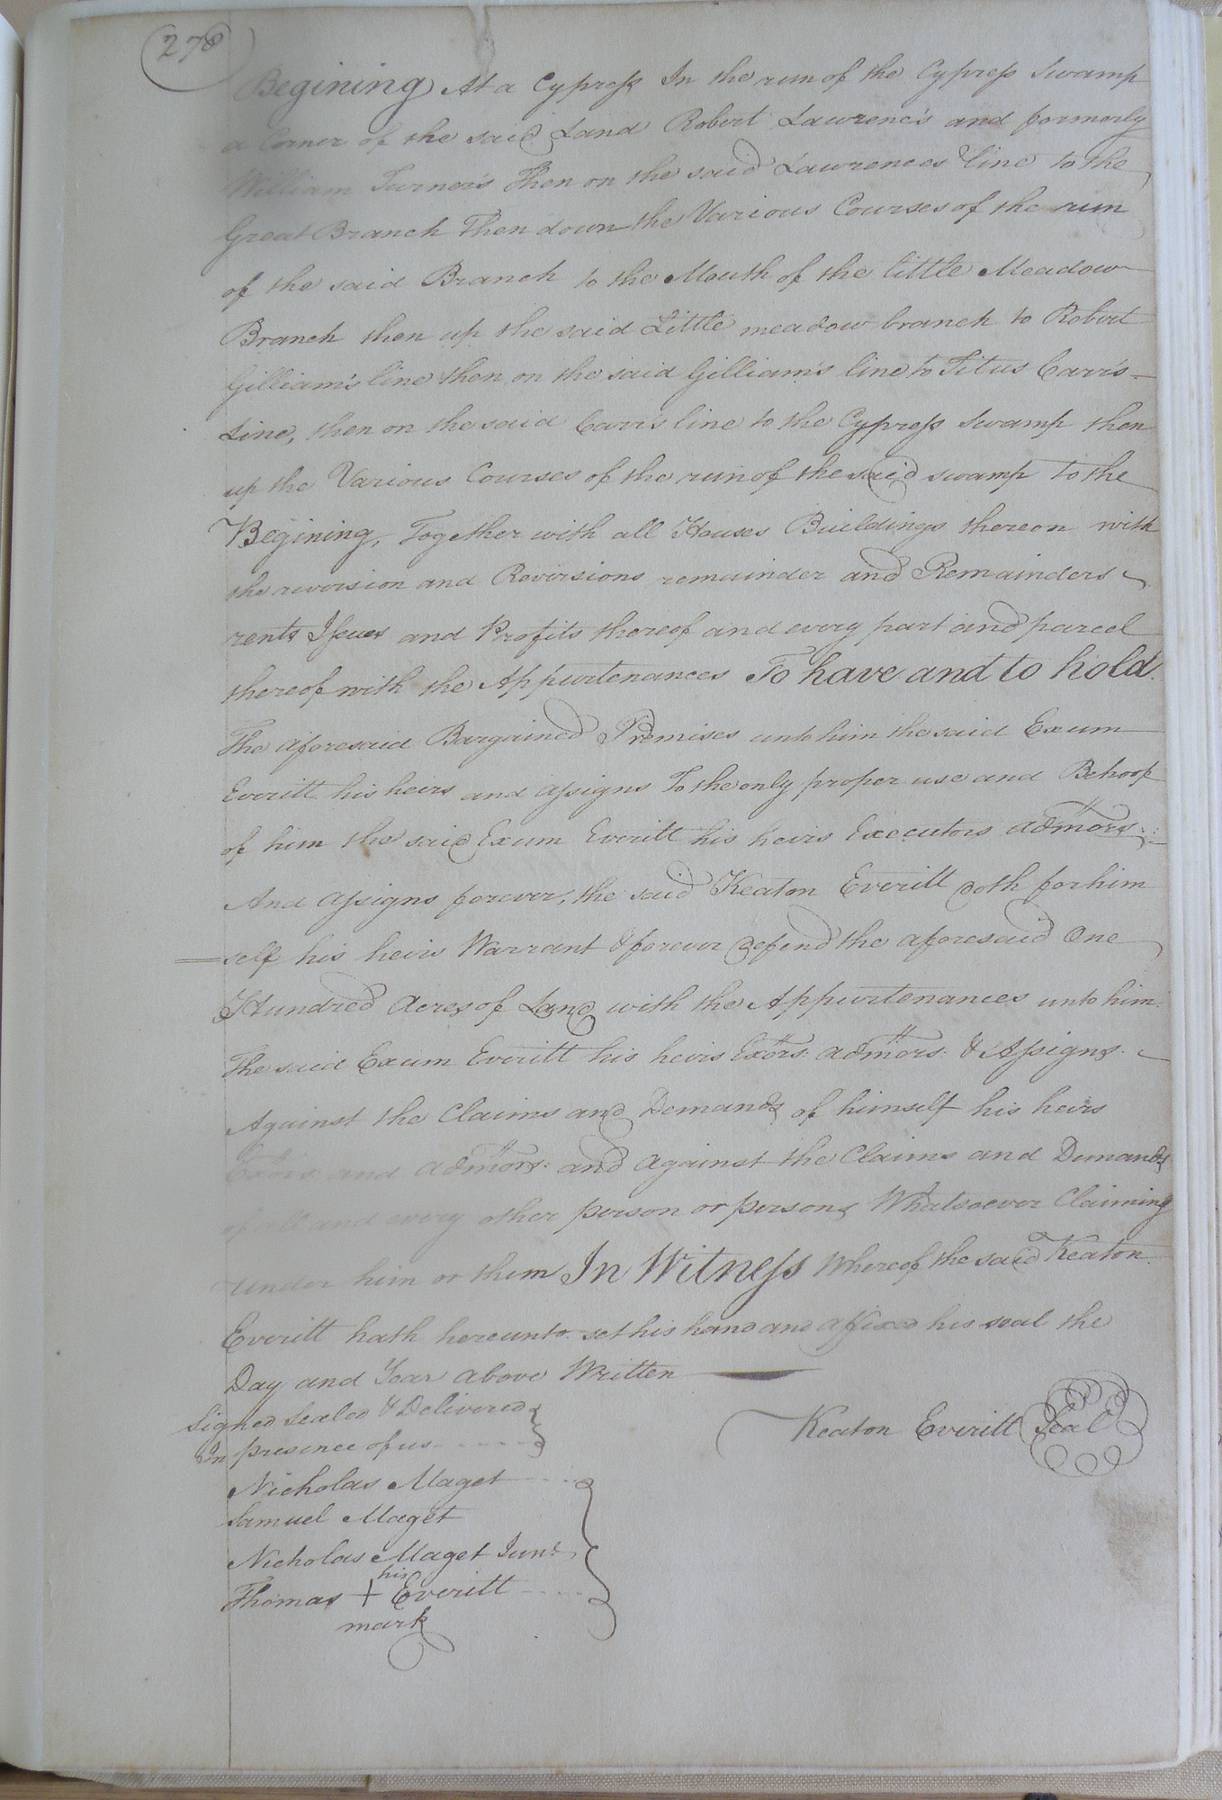 278
Begining At a Cypress In the run of the Cypress Swamp
a Corner of the said Land Robert Lawrence's and formerly
William Turner's Then on the said Lawrences line to the
Great Branch Then down the Various Courses of the run
of the said Branch to the Mouth of the little Meadow
Branch then up the said Little meadow branch to Robert
Gilliam's line then on the said Gilliam's line to Titus Carr's
Line, then on the said Carr's line to the Cypress Swamp then
up the Various Courses of the run of the said swamp to the
Begining, Together with all Houses Buildings thereon with
the reversion and Reversions remainder and Remainders
rents Issues and Profits thereof and every part and parcel
thereof with the Appurtenances To have and to hold
The aforesaid Bargained Premises unto him the said Exum
Everitt his heirs and assigns To the only proper use and Behoof
of him the said Exum Everitt his heirs Executors admors.
And assigns forever, the said Keaton Everitt doth for him
self his heirs Warrant & forever defend the aforesaid One
Hundred Acres of Land with the Appurtenances unto him
The said Exum Everitt his heirs Exors. admors. & Assigns.
Against the Claims and Demands of himself his heirs
Exors and admors. and against the Claims and Demands
of all and every other person or persons Whatsoever Claiming
under him or them In Witness Whereof the said Keaton
Everitt hath hereunto set his hand and affixed his seal the
Day and Year above Written
Signed Sealed & Delivered
In presence of us
Keaton Everitt Seal
Nicholas Maget
Samuel Maget
Nicholas Maget Junr.
his
Thomas + Everitt
mark